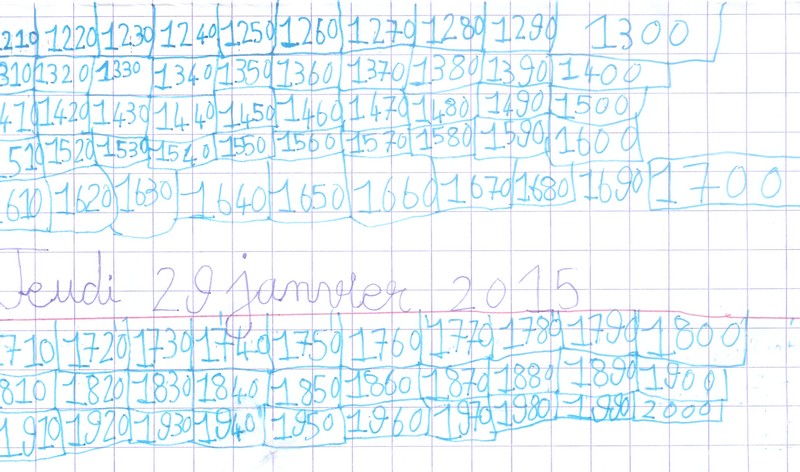 1210 1220 1230 1240 1250 1260 1270 1280 1290 1300
310 1320 1330 1340 1350 1360 1370 1380 1390 1400
410 1420 1430 1440 1450 1460 1470 1480 1490 1500
510 1520 1530 1540 1550 1560 1570 1580 1590 1600
610 1620 1630 1640 1650 1660 1670 1680 1690 1700
Jeudi 29 janvier 2015
710 1720 1730 1740 1750 1760 1770 1780 1790 1800
810 1820 1830 1840 1850 1860 1870 1880 1890 1900
1910 1920 1930 1940 1950 1960 1970 1980 1990 2000